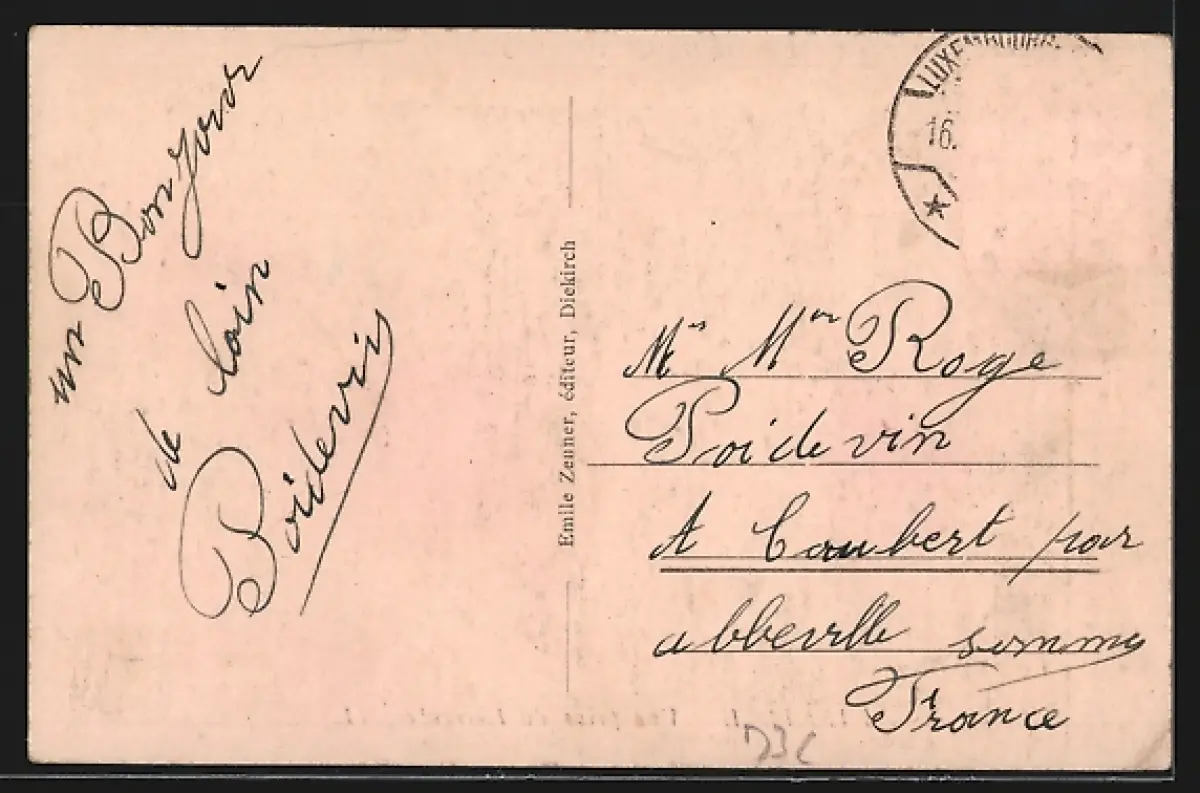 un Bonjour
de loin
Poidevin
Emile Zenner, éditeur, Diekirch
LUXEMBOURG
16.
Mr Mme Roge
Poidevin
A Caubert par
abbeville somme
France